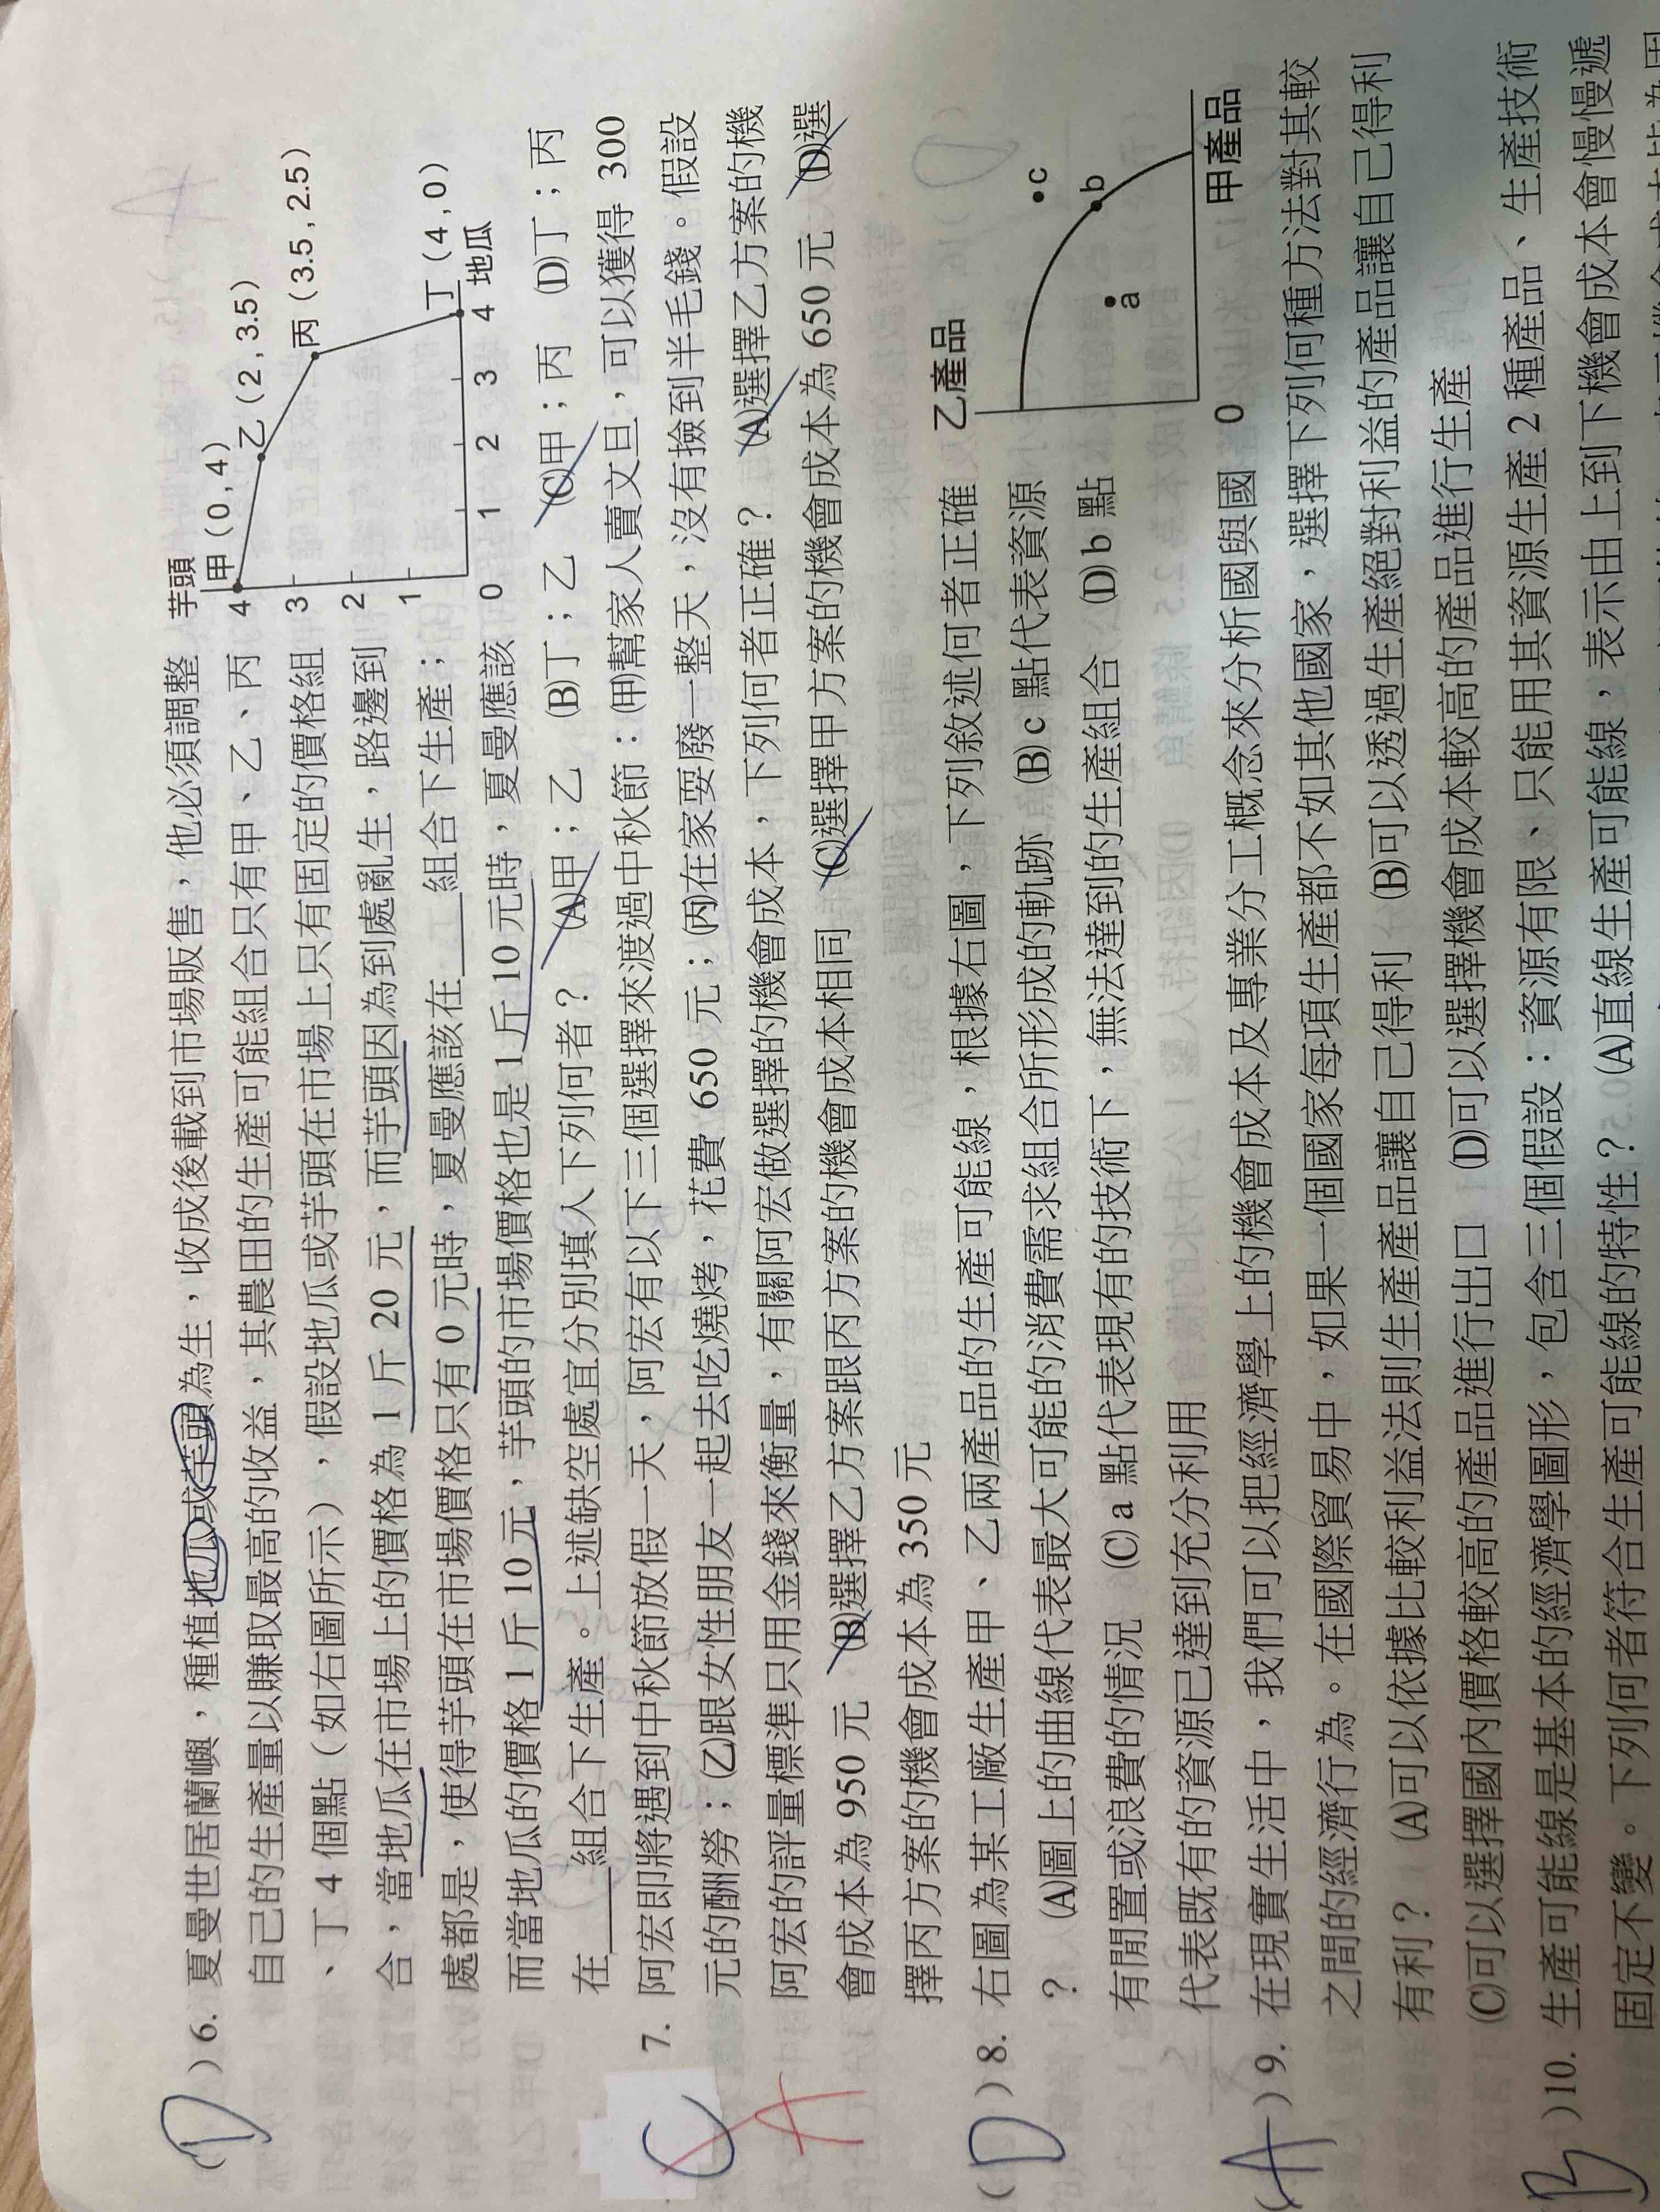 (D)6. 夏曼世居蘭嶼，種植地瓜或芋頭為生，收成後載到市場販售，他必須調整
自己的生產量以賺取最高的收益，其農田的生產可能組合只有甲、乙、丙
、丁 4 個點（如右圖所示），假設地瓜或芋頭在市場上只有固定的價格組
合，當地瓜在市場上的價格為 1 斤 20 元，而芋頭因為到處亂生，路邊到
處都是，使得芋頭在市場價格只有 0 元時，夏曼應該在____組合下生產；
而當地瓜的價格 1 斤 10 元，芋頭的市場價格也是 1 斤 10 元時，夏曼應該
在____組合下生產。上述缺空處宜分別填入下列何者？ (A)甲；乙 (B)丁；乙 (C)甲；丙 (D)丁；丙
芋頭
甲（0 , 4）
乙（2 , 3.5）
丙（3.5 , 2.5）
丁（4 , 0）
4
3
2
1
0 1 2 3 4 地瓜
C
A
7. 阿宏即將遇到中秋節放假一天，阿宏有以下三個選擇來渡過中秋節：(甲)幫家人賣文旦，可以獲得 300
元的酬勞；(乙)跟女性朋友一起去吃燒烤，花費 650 元；(丙)在家耍廢一整天，沒有撿到半毛錢。假設
阿宏的評量標準只用金錢來衡量，有關阿宏做選擇的機會成本，下列何者正確？ (A)選擇乙方案的機
會成本為 950 元 (B)選擇乙方案跟丙方案的機會成本相同 (C)選擇甲方案的機會成本為 650 元 (D)選
擇丙方案的機會成本為 350 元
(D)8. 右圖為某工廠生產甲、乙兩產品的生產可能線，根據右圖，下列敘述何者正確
？ (A)圖上的曲線代表最大可能的消費需求組合所形成的軌跡 (B) c 點代表資源
有閒置或浪費的情況 (C) a 點代表現有的技術下，無法達到的生產組合 (D) b 點
代表既有的資源已達到充分利用
乙產品
c
b
a
0 甲產品
(A)9. 在現實生活中，我們可以把經濟學上的機會成本及專業分工概念來分析國與國
之間的經濟行為。在國際貿易中，如果一個國家每項生產都不如其他國家，選擇下列何種方法對其較
有利？ (A)可以依據比較利益法則生產產品讓自己得利 (B)可以透過生產絕對利益的產品讓自己得利
(C)可以選擇國內價格較高的產品進行出口 (D)可以選擇機會成本較高的產品進行生產
(B)10. 生產可能線是基本的經濟學圖形，包含三個假設：資源有限、只能用其資源生產 2 種產品、生產技術
固定不變。下列何者符合生產可能線的特性？ (A)直線生產可能線，表示由上到下機會成本會慢慢遞